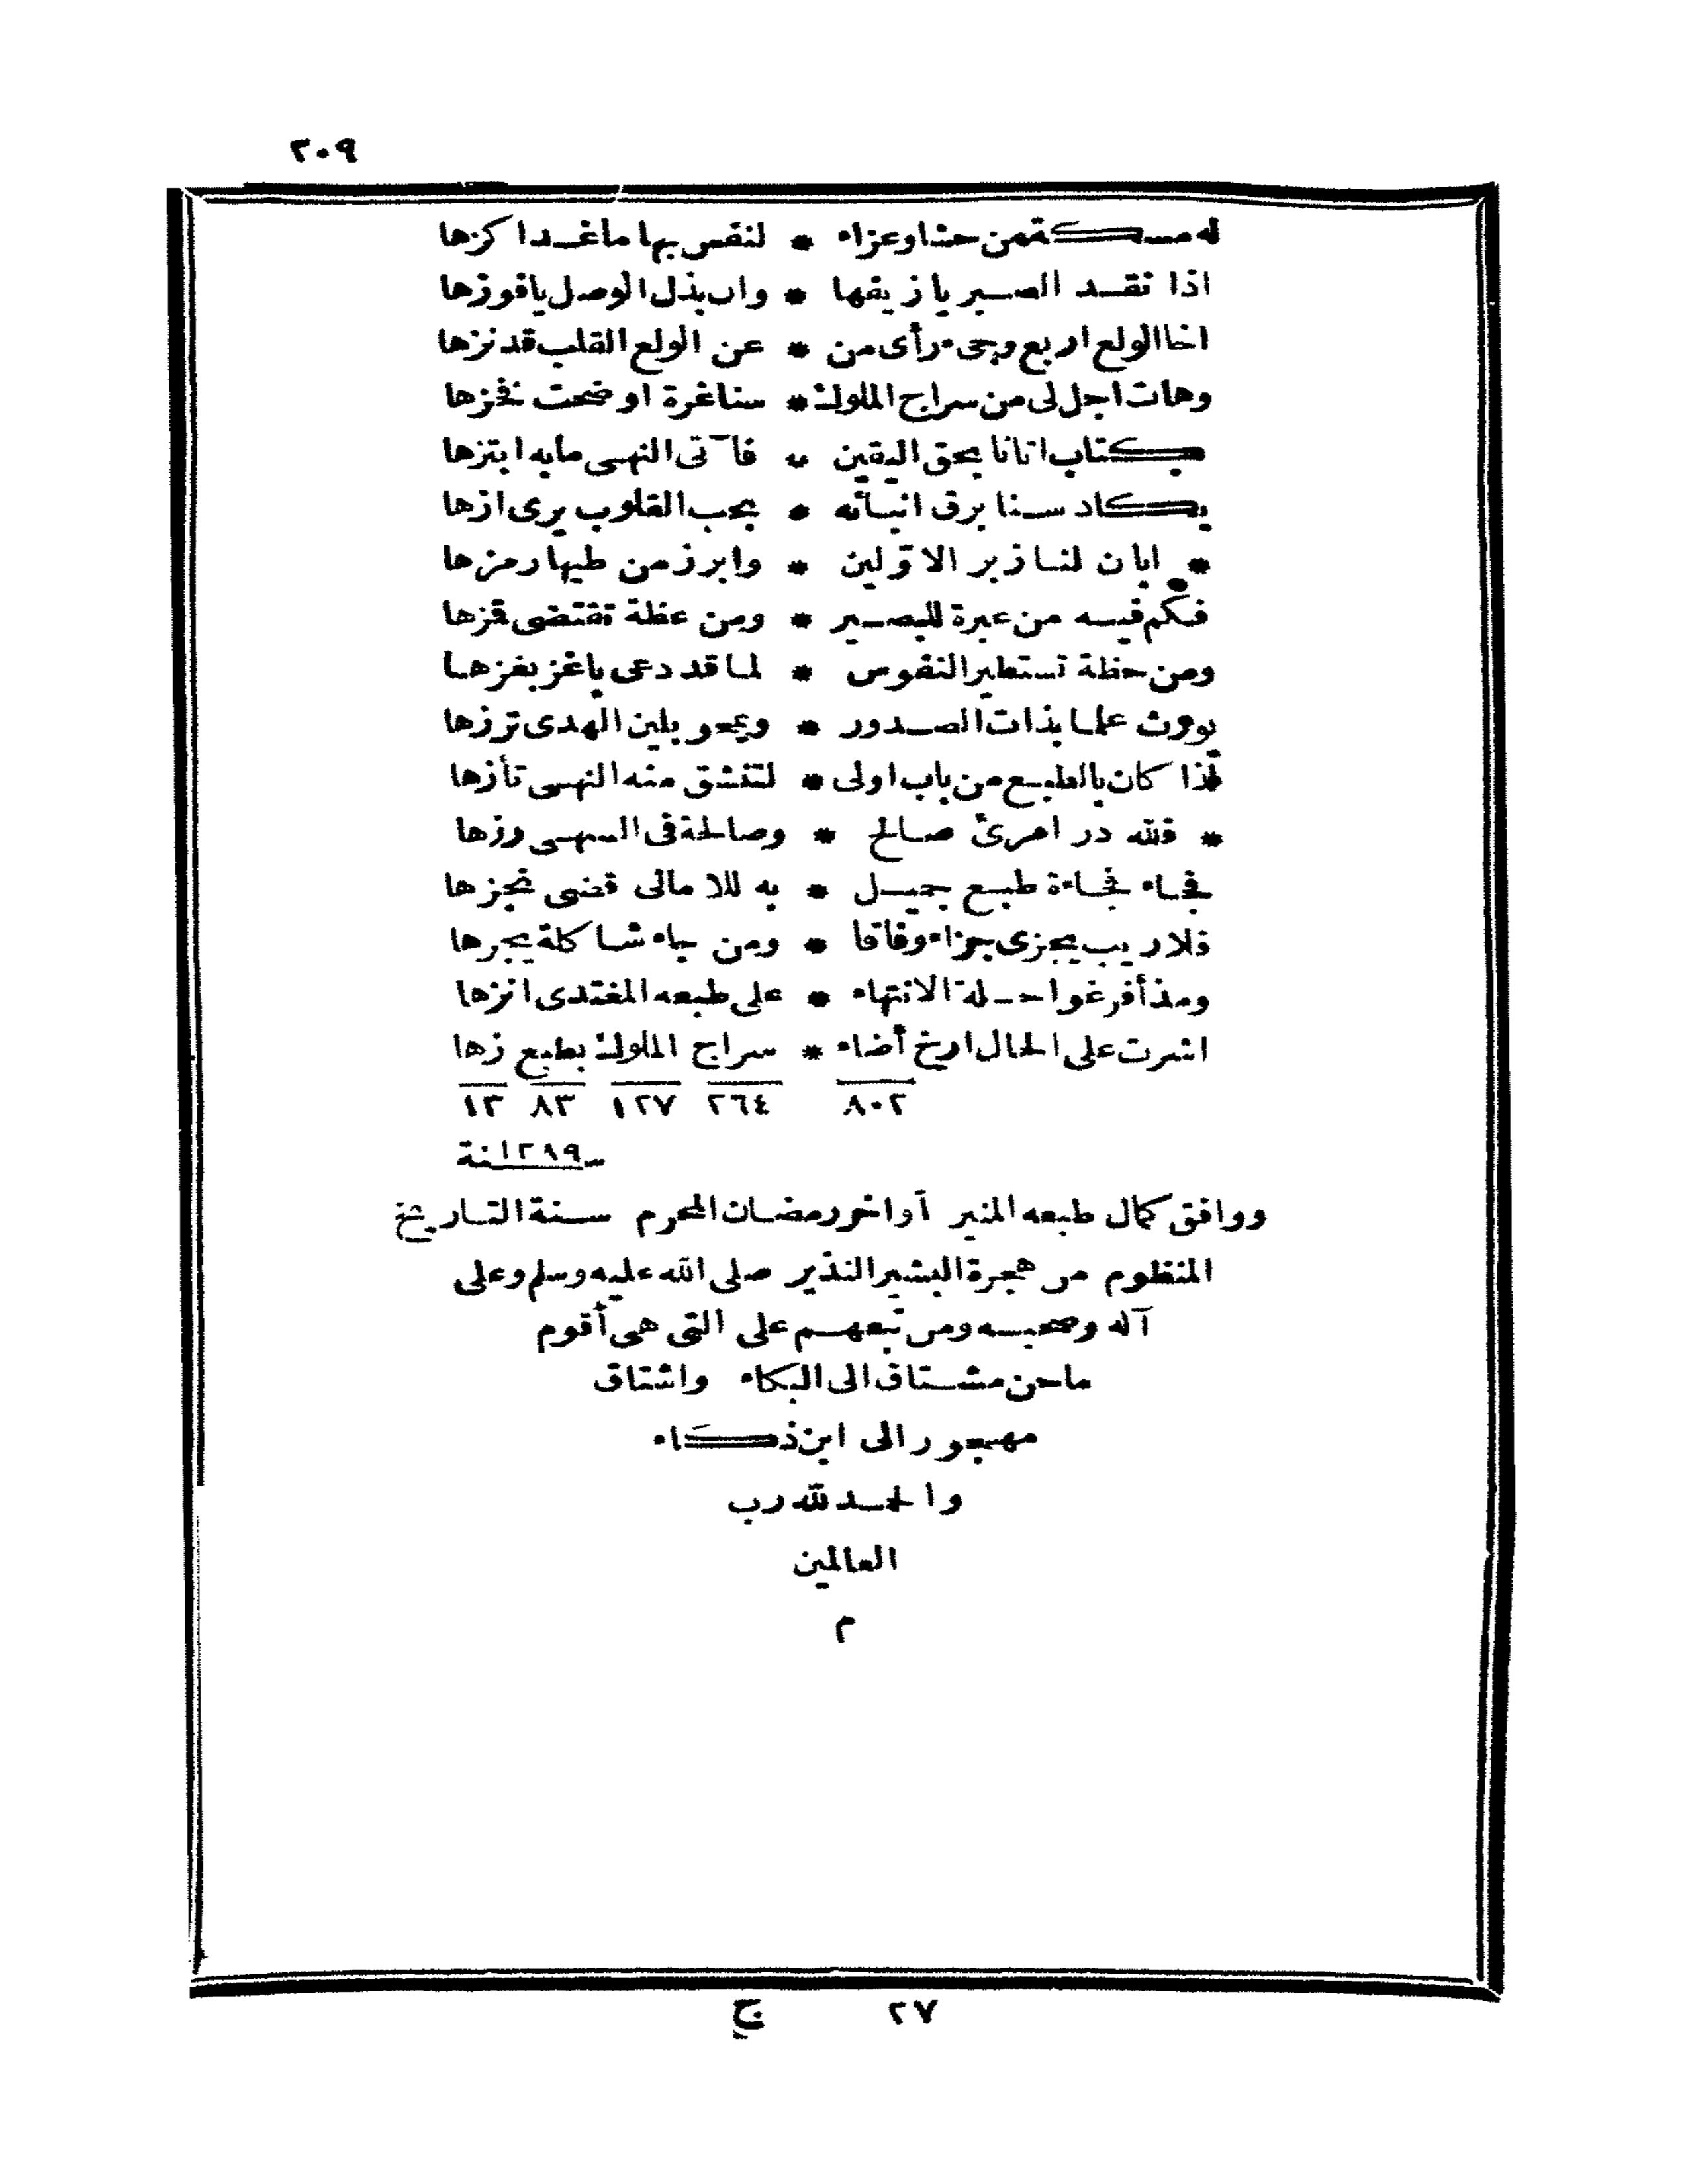 ٢٠٩
له مسكة من حشا وعزاء * لنفس بها ما غدا كزها
اذا نقد الصبر يا زيفها * وان بذل الوصل يا فوزها
اخا الولع اربع وجىء رأى من * عن الولع القلب قد نزها
وهات اجل لى من سراج الملوك * سنا غرة اوضحت نخزها
كتاب اتانا بحق اليقين * فآتى النهى مابه ابتزها
يكاد سنا برق انبائه * بحب القلوب يرى ازها
* ابان لنا زبر الاوّلين * وابرز من طيها رمزها
فكم فيه من عبرة للبصير * ومن عظة تقتضى قزها
ومن حظة تستطير النفوس * لما قد دعى ياغز بغزها
يورث علما بذات الصدور * ويمحو بلين الهدى ترزها
لذا كان بالطبع من باب اولى * لتنشق منه النهى تأزها
* فلله در امرئ صالح * وصالحة فى السهى وزها
فجاء فجاءة طبع جميل * به للامالى قضى نجزها
فلاريب يجزى جزاء وفاقا * ومن جاء شاكلة يجزها
ومذ أفرغوا حلة الانتهاء * على طبعه المغتدى انزها
اشرت على الحال ارخ أضاء * سراج الملوك بطبع زها
٨٠٢ ٢٦٤ ١٢٧ ٨٣ ١٣
سنة ١٢٨٩
ووافق كمال طبعه المنير أواخر رمضان المحرم سنة التاريخ
المنظوم من هجرة البشير النذير صلى الله عليه وسلم وعلى
آله وصحبه ومن تبعهم على التى هى أقوم
ما حن مشتاق الى البكاء واشتاق
مهجور الى ابن ذكاء
والحمد لله رب
العالمين
م
٢٧ ج